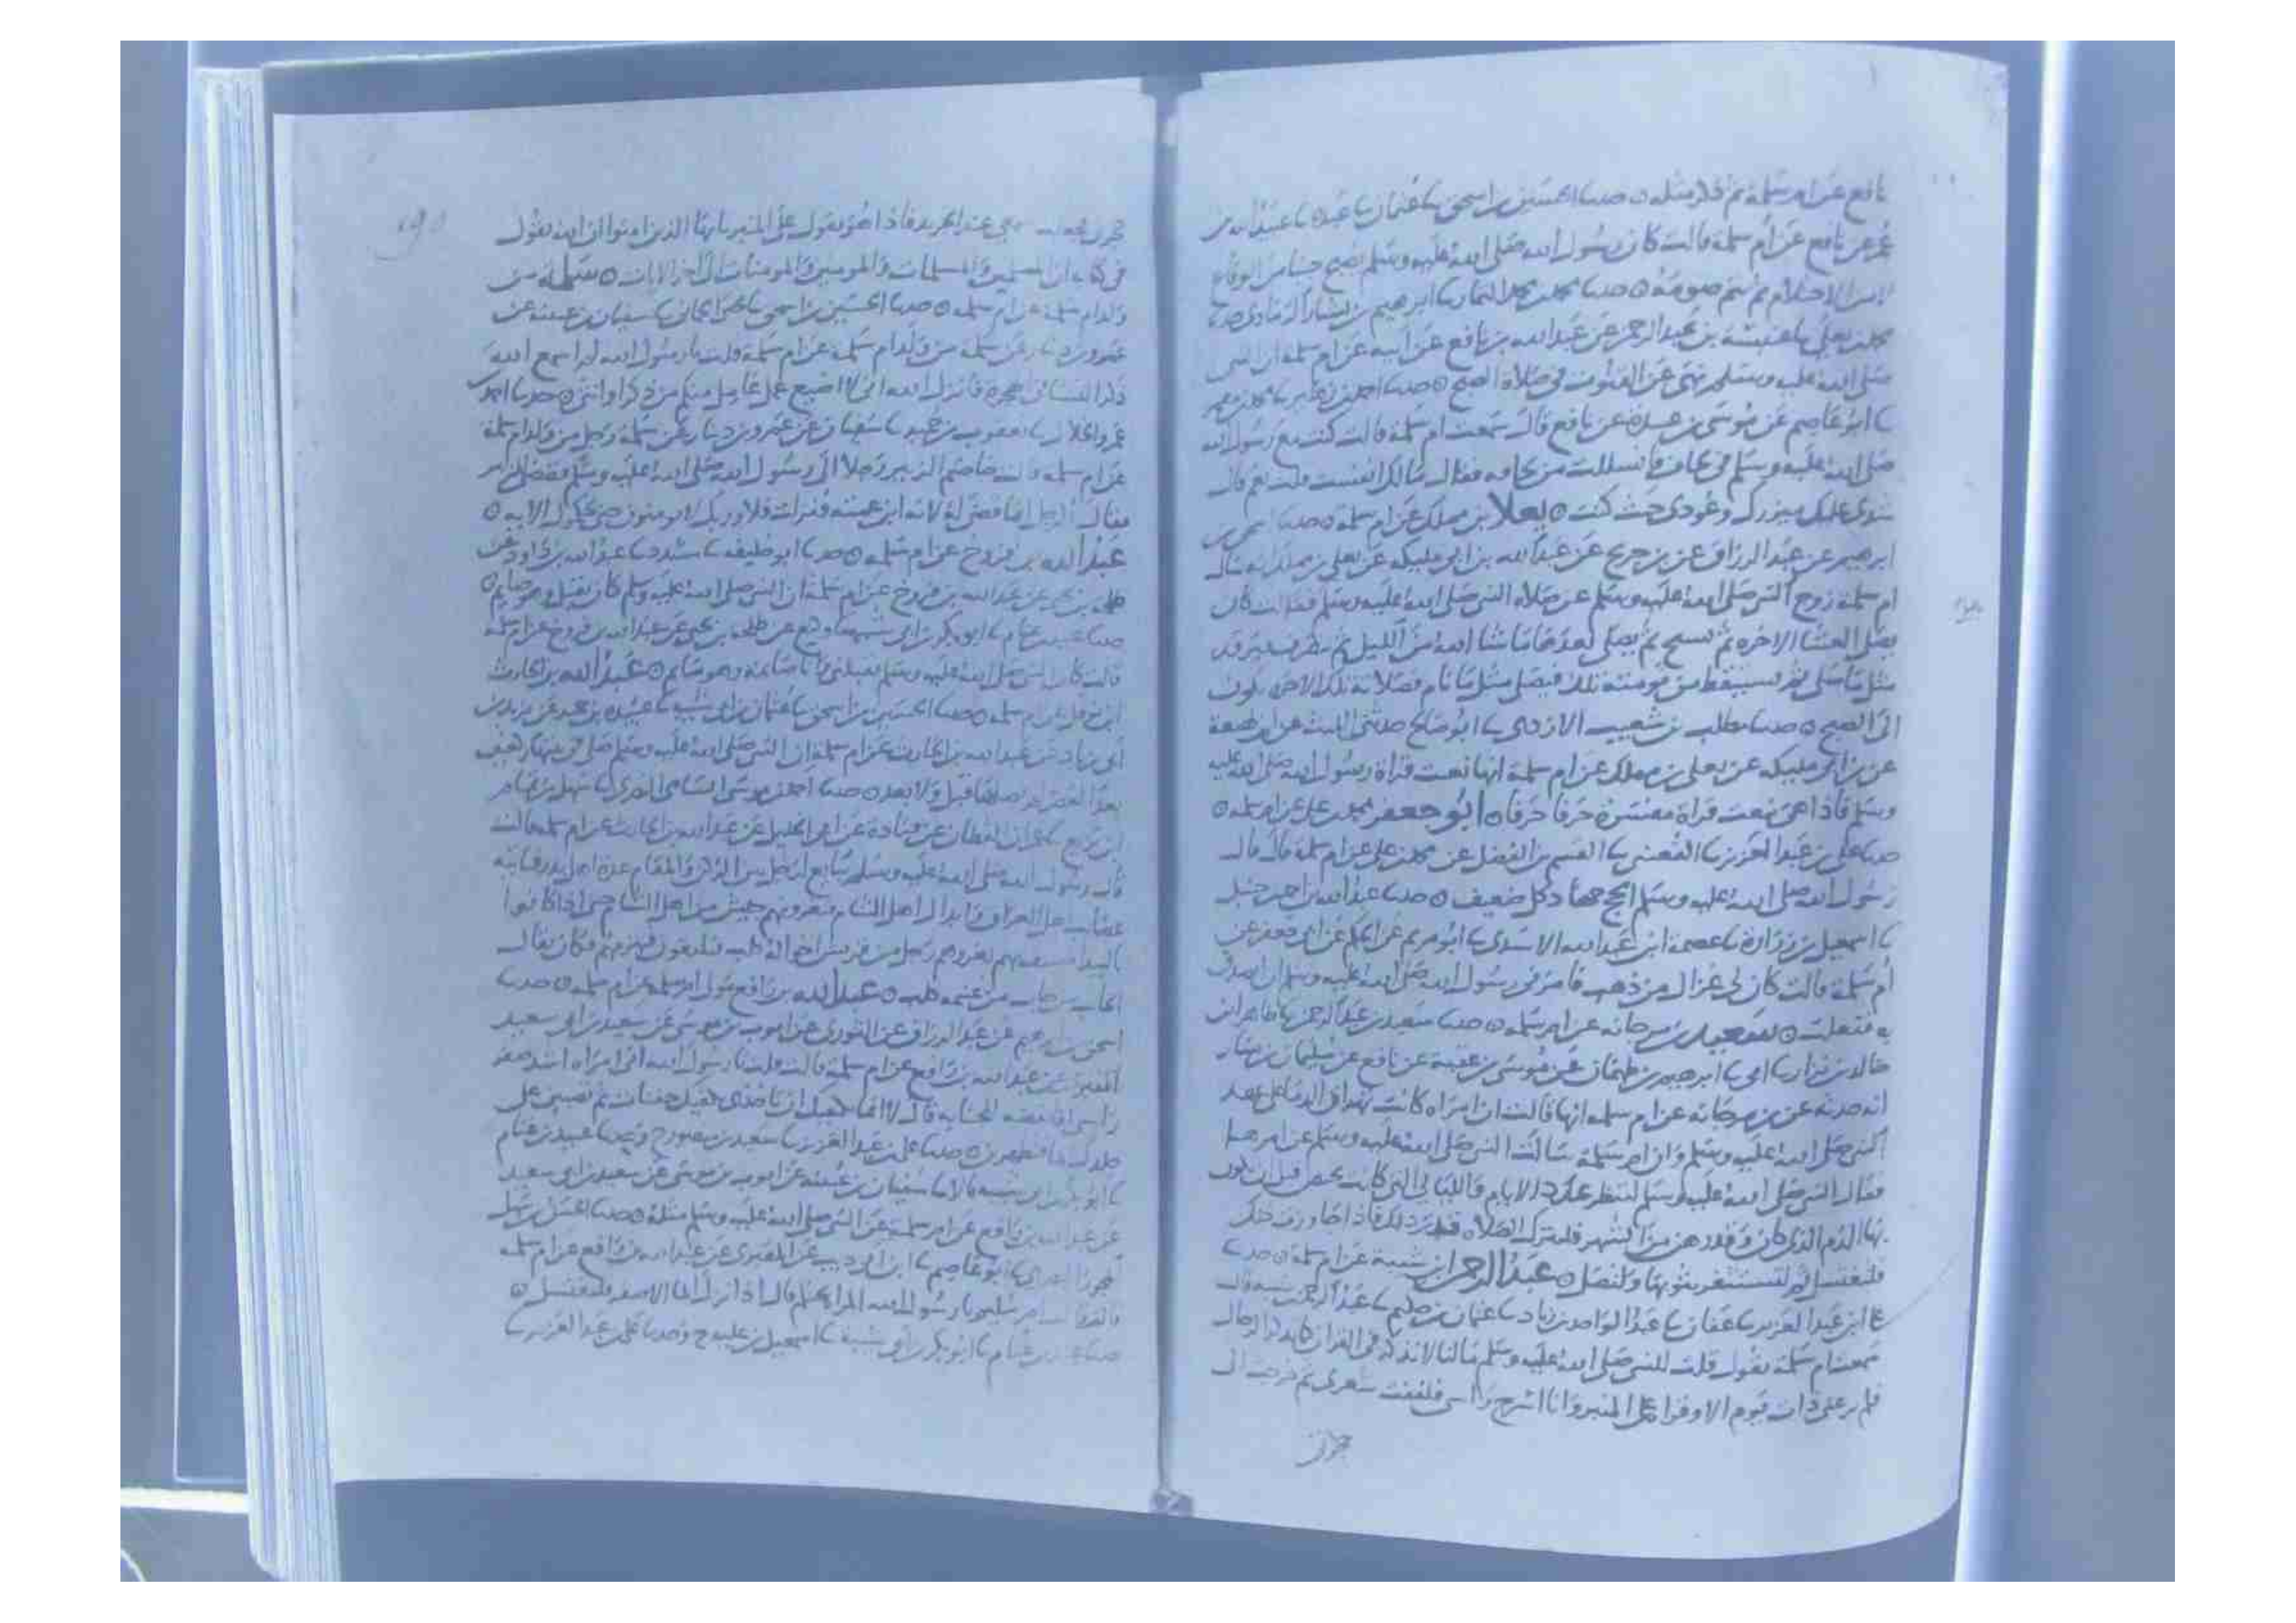 نافع عن ام سلمة ثم ذكر مثله ه حدثنا الحسين بن اسحق نا عثمان نا عبدة نا عبيد الله بن
عمر عن نافع عن ام سلمة قالت كان رسول الله صلى الله عليه وسلم يصبح جنبا من الوقاع
لا من الاحتلام ثم يتم صومه ه حدثنا محمد بن محمد التمار نا ابرهيم بن بشار الرمادي حدثنا
محمد بن يعلى نا عنبسة بن عبد الرحمن عن عبد الله بن نافع عن ابيه عن ام سلمة ان النبي
صلى الله عليه وسلم نهى عن القنوت في صلاة الصبح ه حدثنا احمد بن زهير نا محمد بن معمر
نا ابو عاصم عن موسى بن عبيدة عن نافع قال سمعت ام سلمة قالت كنت مع رسول الله
صلى الله عليه وسلم في لحاف فانسللت من لحافه فقال مالك انفست قلت نعم قال
شدي عليك ميزرك وعودي حيث كنت ه يعلا بن مملك عن ام سلمة ه حدثنا اسحق بن
ابرهيم عن عبد الرزاق عن بن جريج عن عبد الله بن ابي مليكه عن يعلى بن مملك انه سال
ام سلمة زوج النبي صلى الله عليه وسلم عن صلاة النبي صلى الله عليه وسلم فقالت كان
يصلي العشا الاخره ثم يسبح ثم يصلي بعدها ما شا الله من الليل ثم ينصرف فيرقد
مثل ما صلى ثم يستيقظ من نومته تلك فيصلي مثل ما نام وصلاته تلك الاخره تكون
الى الصبح ه حدثنا مطلب بن شعيب الازدي نا ابو صالح حدثني الليث عن ابن لهيعة
عن بن ابي مليكه عن يعلى بن مملك عن ام سلمة انها نعتت قراة رسول الله صلى الله عليه
وسلم فاذا هي نعتت قراة مفسرة حرفا حرفا ه ابو جعفر محمد بن علي عن ام سلمه ه
حدثنا علي بن عبد العزيز نا القعنبي نا القسم بن الفضل عن محمد بن علي عن ام سلمة قال قال
رسول الله صلى الله عليه وسلم الحج جهاد كل ضعيف ه حدثنا عبد الله بن احمد بن حنبل
نا اسمعيل بن زرارة نا عصمة ابن عبد الله الاسدي نا ابو مريم عن الحكم عن ابي جعفر عن
ام سلمة قالت كان لي غزال من ذهب فامرني رسول الله صلى الله عليه وسلم ان اتصدق
به ففعلت ه سعيد بن مرجانه عن ام سلمه ه حدثنا سعيد بن عبد الرحمن نا طاهر ابن
خالد بن نزار نا ابي نا ابرهيم بن طهمان عن موسى بن عقبة عن نافع عن سليمان بن يسار
انه حدثه عن بن مرجانه عن ام سلمه انها قالت ان امراه كانت تهراق الدما على عهد
النبي صلى الله عليه وسلم وان ام سلمة سالت النبي صلى الله عليه وسلم عن امرها
فقال النبي صلى الله عليه وسلم لتنظر عدد الايام والليالي التي كانت تحيض قبل ان يكون
بها الدم الذي كان وقدرهن من الشهر فلتترك الصلاه قدر ذلك فاذا جاوزت ذلك
فلتغتسل ثم لتستثفر بثوبها ولتصل ه عبد الرحمن ابن شيبة عن ام سلمة ه حدثنا
علي بن عبد العزيز نا عفان نا عبد الواحد بن زياد نا عثمان بن حكيم نا عبد الرحمن بن شيبه قال
سمعت ام سلمة تقول قلت للنبي صلى الله عليه وسلم ما لنا لا نذكر في القران كما يذكر الرجال
فلم يرعني ذات يوم الا وندا على المنبر وانا اسرح راسي فلففت شعري ثم خرجت الى
حجرتي
١٩٠
حجرتي فجعلت سمعي عند الجريد فاذا هو يقول على المنبر يا ايها الذين امنوا ان الله يقول
في كتابه ان المسلمين والمسلمات والمومنين والمومنات الى اخر الايات ه سلمة من
ولد ام سلمة عن ام سلمه ه حدثنا الحسين بن اسحق نا يحيى الحماني نا سفيان بن عيينه عن
عمرو بن دينار عن سلمة من ولد ام سلمة عن ام سلمة قلت يا رسول الله لم اسمع الله
ذكر النسا في الهجرة فانزل الله اني لا اضيع عمل عامل منكم من ذكر او انثى ه حدثنا احمد
عمرو الخلال نا يعقوب بن حميد نا سفيان عن عمرو بن دينار عن سلمة رجل من ولد ام سلمة
عن ام سلمه قالت خاصم الزبير رجلا الى رسول الله صلى الله عليه وسلم فقضى للزبير
فقال الرجل انما قضى له لانه ابن عمته فنزلت فلا وربك لا يومنون حتى يحكموك الايه ه
عبد الله بن فروخ عن ام سلمه ه حدثنا ابو خليفه نا مسدد نا عبد الله بن داود عن
طلحه بن يحيى عن عبد الله بن فروخ عن ام سلمة ان النبي صلى الله عليه وسلم كان يقبل وهو صايم ه
حدثنا عبيد بن غنام نا ابو بكر بن ابي شيبه نا وكيع عن طلحه بن يحيى عن عبد الله بن فروخ عن ام سلمة
قالت كان النبي صلى الله عليه وسلم يقبلني وانا صائمة وهو صايم ه عبد الله بن الحارث
ابن نوفل عن ام سلمه ه حدثنا الحسين بن اسحق نا عثمان بن ابي شيبه نا عبيده بن حميد عن يزيد بن
ابي زياد عن عبد الله بن الحارث عن ام سلمة ان النبي صلى الله عليه وسلم صلى في بيتها ركعتين
بعد العصر لم يصلهما قبل ولا بعد ه حدثنا احمد بن موسى الشامي البصري نا سهل بن تمام
ابن بزيع نا عمران القطان عن قتادة عن ابي الخليل عن عبد الله بن الحارث عن ام سلمه قالت
قال رسول الله صلى الله عليه وسلم يبايع لرجل بين الركن والمقام عدة اهل بدر فياتيه
عصائب اهل العراق وابدال اهل الشام فيغزوهم جيش من اهل الشام حتى اذا كانوا
بالبيدا خسف بهم ثم يغزوهم رجل من قريش اخواله كلب فيلتقون فيهزمهم فكان يقال
الخائب من خاب من غنيمه كلب ه عبد الله بن رافع مولى ام سلمه عن ام سلمه ه حدثنا
اسحق بن ابرهيم عن عبد الرزاق عن الثوري عن ايوب بن موسى عن سعيد بن ابي سعيد
المقبري عن عبد الله بن رافع عن ام سلمة قالت قلت يا رسول الله اني امراه اشد ضفر
راسي افانقضه للجنابه قال لا انما يكفيك ان تاخذي بكفيك حفنات ثم تصبين على
جلدك الما فتطهرين ه حدثنا علي بن عبد العزيز نا سعيد بن منصور ح وحدثنا عبيد بن غنام
نا ابو بكر بن ابي شيبه قالا نا سفيان بن عيينه عن ايوب بن موسى عن سعيد بن ابي سعيد
عن عبد الله بن رافع عن ام سلمة عن النبي صلى الله عليه وسلم مثله ه حدثنا
نا ابو عاصم نا ابن ابي ذيب عن المقبري عن عبد الله بن رافع عن ام سلمه
قالت ام سليم يا رسول الله المراه تحتلم قال اذا انزلت الما الاصفر فلتغتسل ه
حدثنا عبيد بن غنام نا ابو بكر بن ابي شيبة نا اسمعيل بن عليه ح وحدثنا علي بن عبد العزيز نا